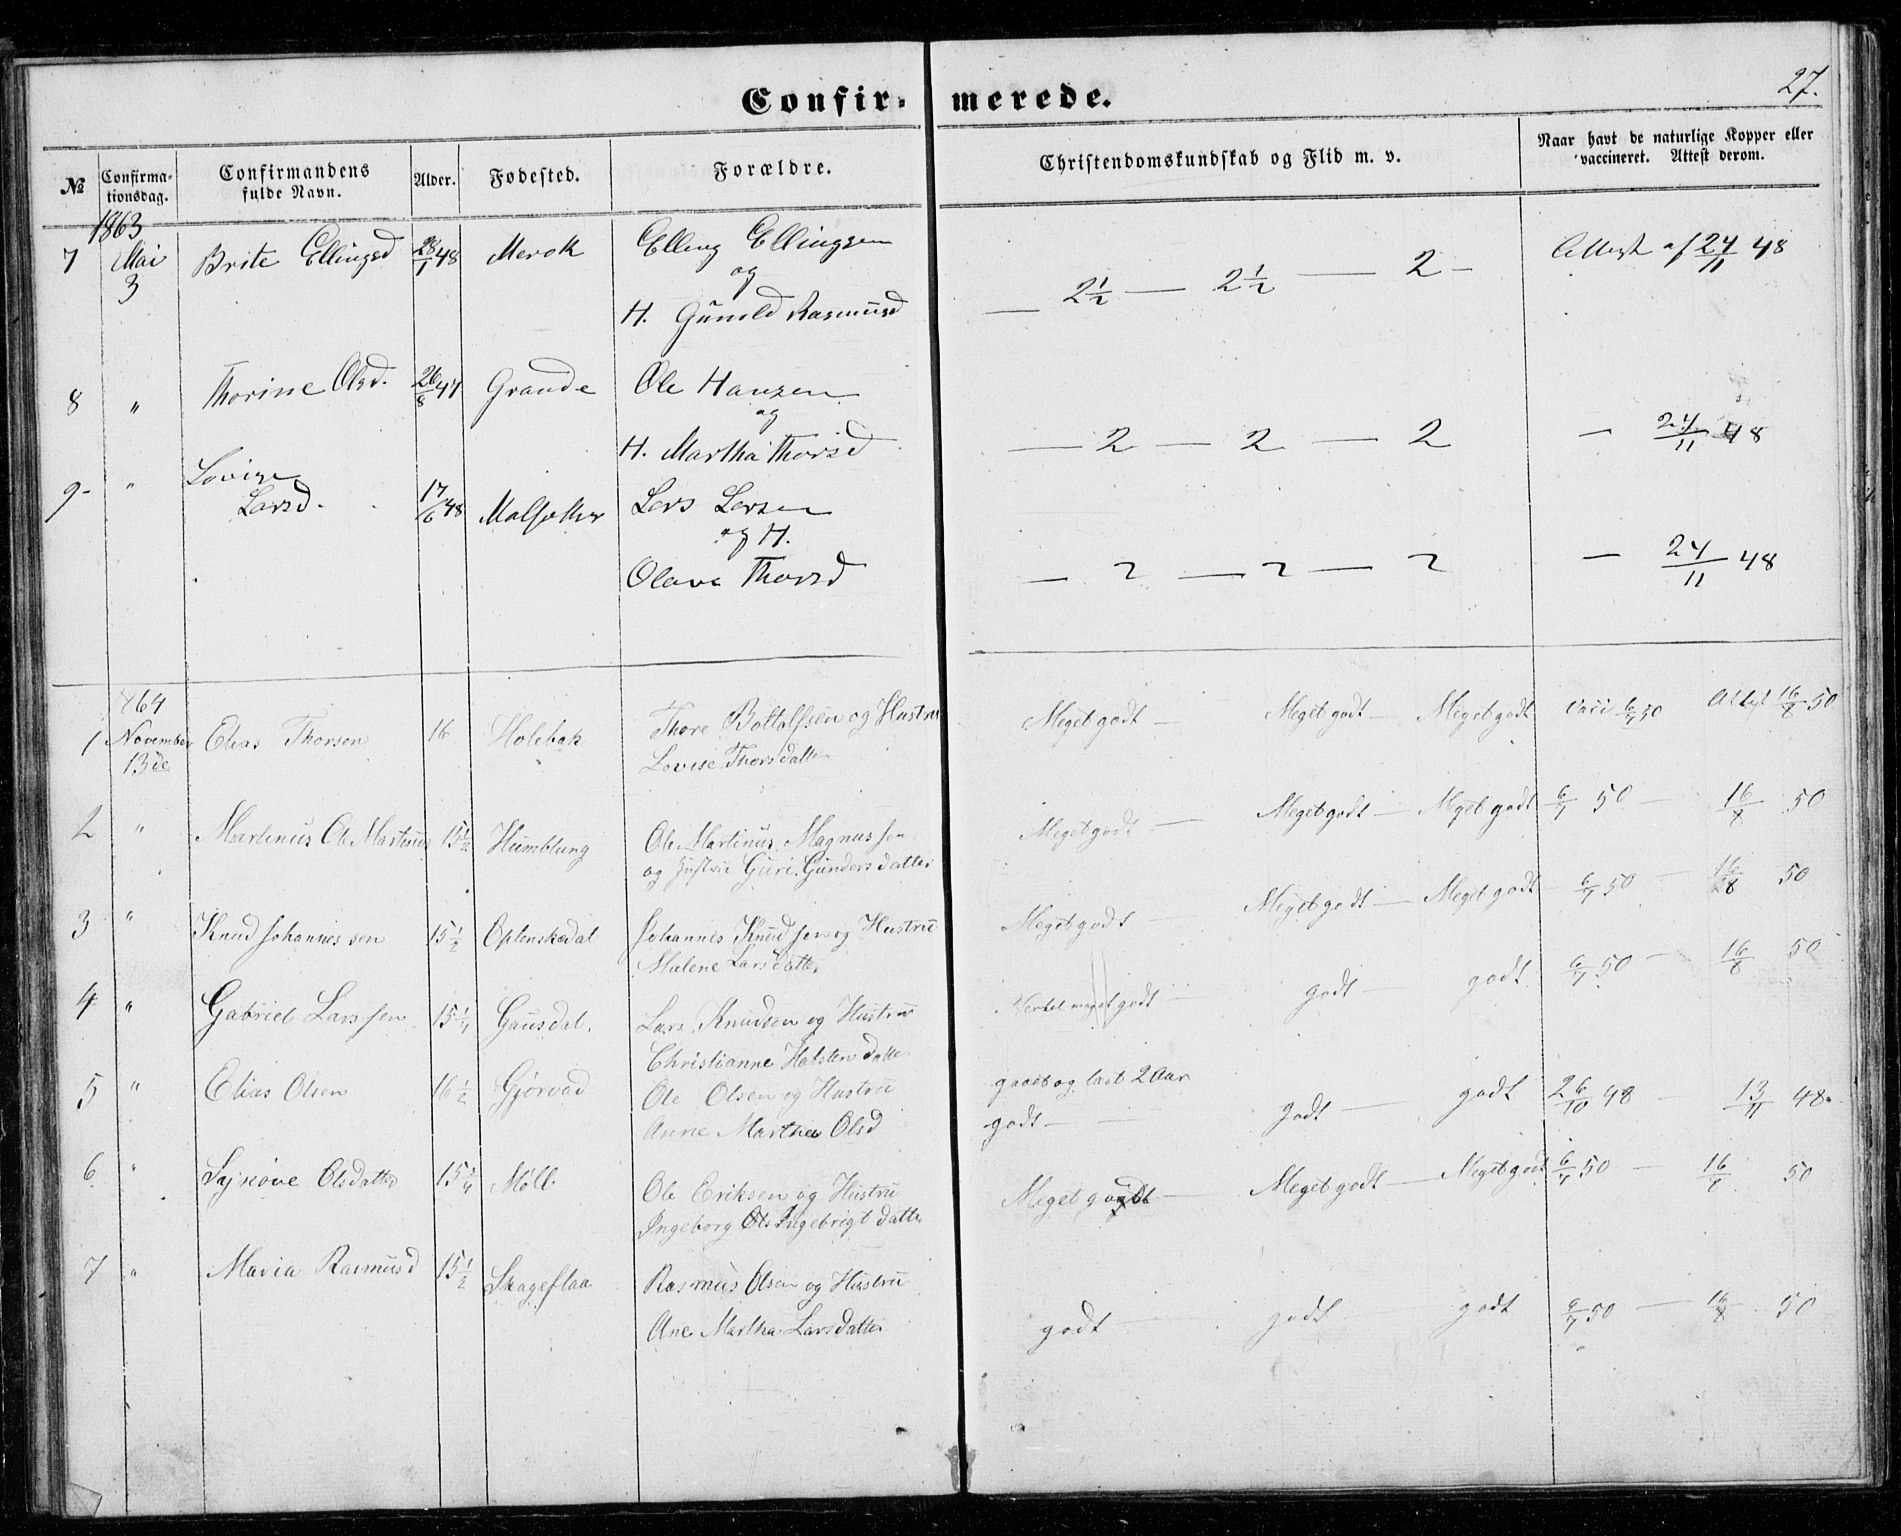 Confir- merede.
27.
№ Confirma-tionsdag. Confirmandens fulde Navn. Alder. Fødested. Forældre. Christendomskundskab og Flid m. v. Naar havt de naturlige Kopper eller vaccineret. Attest derom.
1863
7 Mai 3 Brite Ellingsd 28/1 48 Merok Elling Ellingsen — 2½ — 2½ — 2 — Attest af 24/11 48
og
H. Gunild Rasmusd
8 " Thorine Olsd. 26/8 47 Grande Ole Hansen
og
H. Martha Thorsd — 2 — 2 — 2 — 24/11 48
9 " Lovise
Larsd. 17/6 48 Lars Larsen
og H.
Olave Thorsd — 2 — 2 — 2 — 24/11 48
1864
1 November 13de Elias Thorsen 16 Holebak Thore Bottolfsen og Hustru Meget godt — Meget godt — Meget godt Vacc 6/7 50 Attest 16/8 50
Lovise Thorsdatter
2 " Martinus Ole Martinus 15½ Humblung Ole Martinus Magnussen Meget godt — Meget godt — Meget godt 6/7 50 — 16/8 50
og Hustru Guri Gundersdatter
3 " Knud Johannessen 15½ Oplenskedal Johannes Knudsen og Hustru Meget godt — Meget godt — Meget godt 6/7 50 — 16/8 50
Malene Larsdatter
4 " Gabriel Larssen 15¼ Gausdal. Lars Knudsen og Hustru meget godt — godt — godt 6/7 50 — 16/8 50
Christianne Halstendatter
5 " Elias Olsen 16½ Gjørvad Ole Olsen og Hustru gaaet og læst 2 Aar
Anne Marthea Olsd godt — godt — godt 26/10 48 — 13/11 48
6 " Synnove Olsdatter 15¾ Møll Ole Eriksen og Hustru Meget godt — Meget godt — Meget godt 6/7 50 — 16/8 50
Ingeborg Ingebrigtdatter
7 " Maria Rasmusd 15½ Skageflaa Rasmus Olsen og Hustru
Ane Martha Larsdatter godt — godt — godt 6/7 50 — 16/8 50